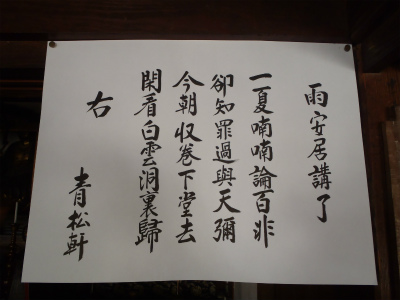 雨安居講了
一夏喃喃論百非
卻知罪過與天彌
今朝収巻下堂去
閑看白雲洞裏歸
右
青松軒